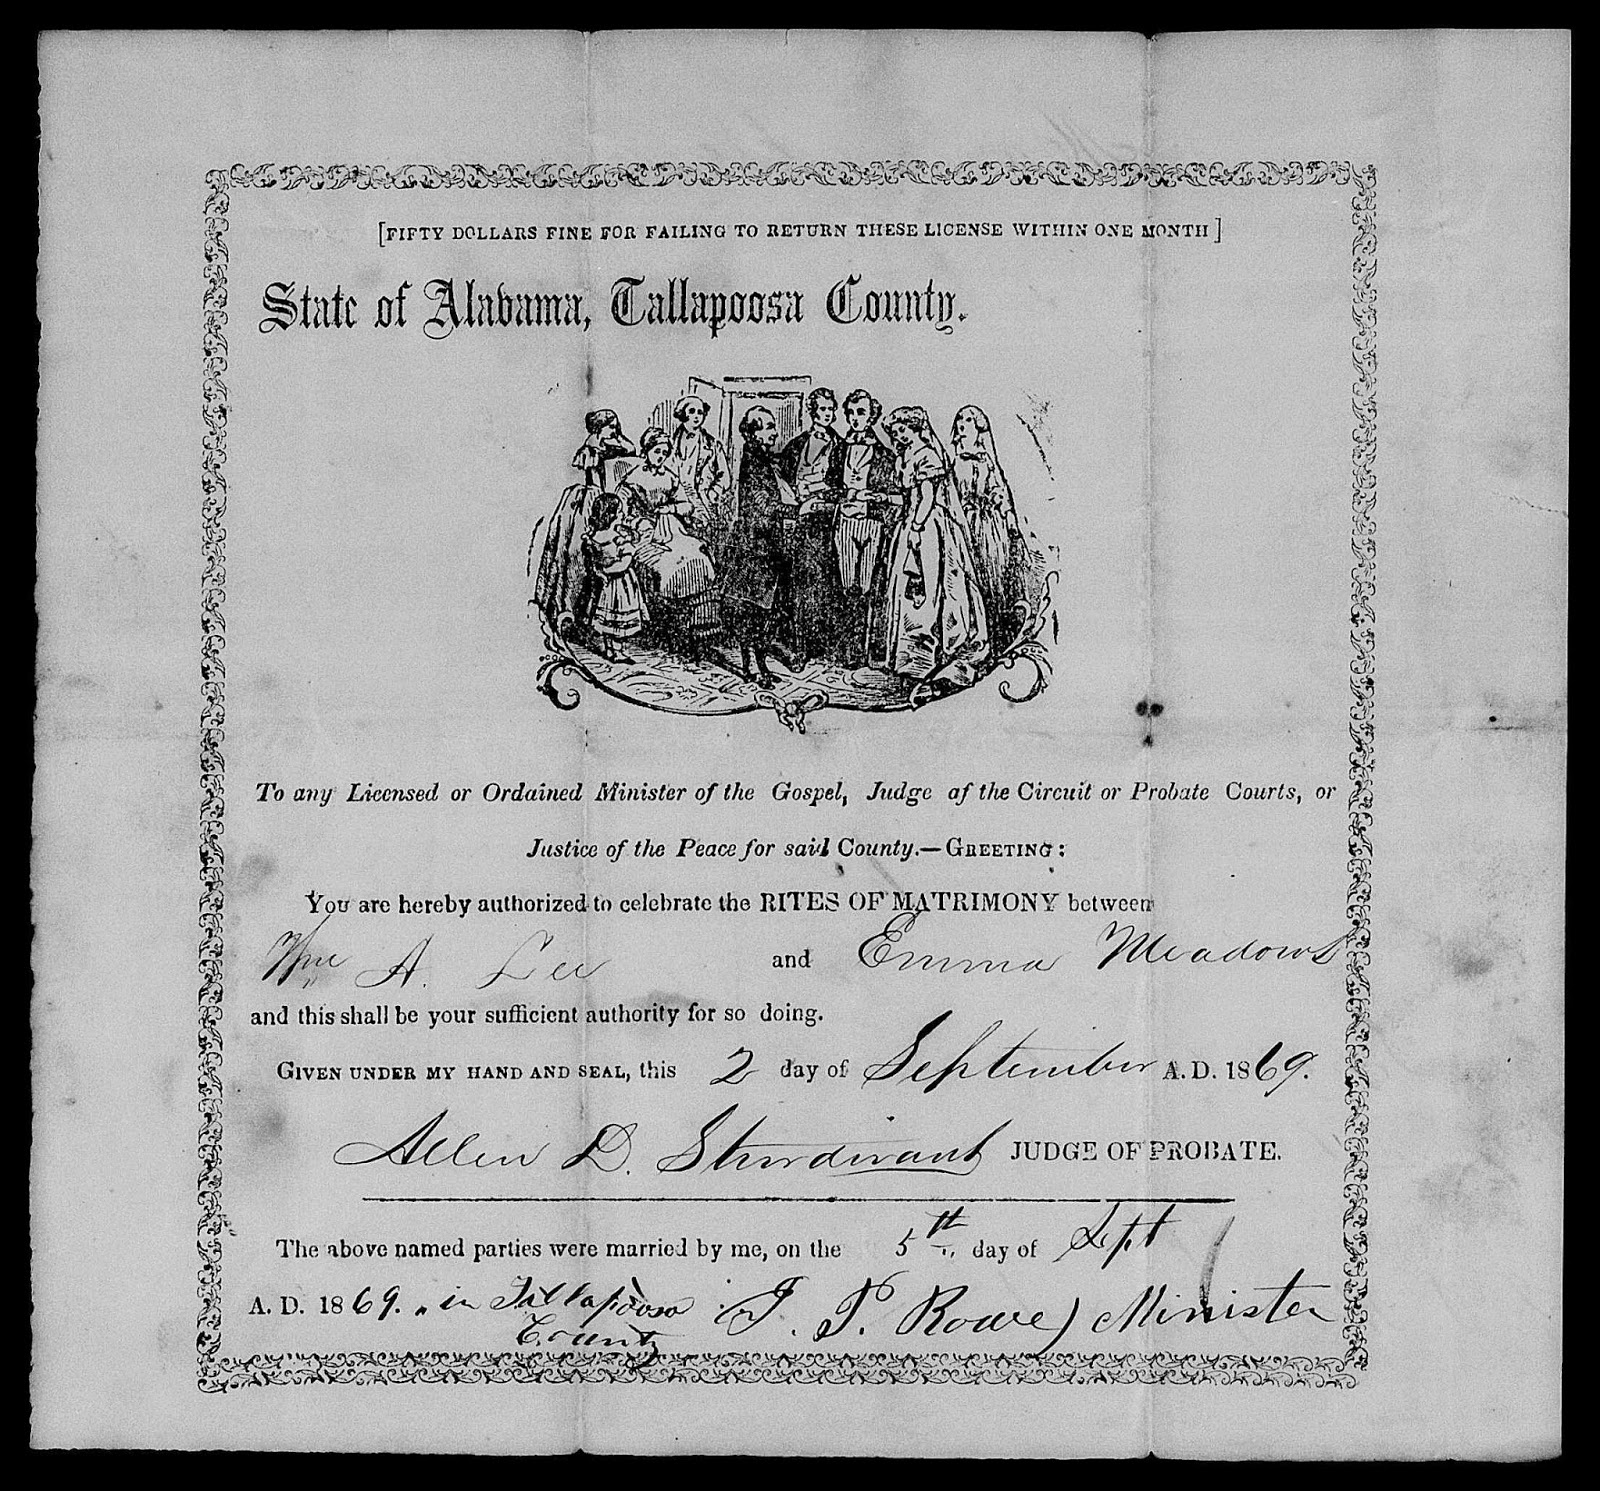 [FIFTY DOLLARS FINE FOR FAILING TO RETURN THESE LICENSE WITHIN ONE MONTH]
State of Alabama, Tallapoosa County.
To any Licensed or Ordained Minister of the Gospel, Judge af the Circuit or Probate Courts, or
Justice of the Peace for said County.—GREETING:
You are hereby authorized to celebrate the RITES OF MATRIMONY between
Wm A. Lee and Emma Meadows
and this shall be your sufficient authority for so doing.
GIVEN UNDER MY HAND AND SEAL, this 2 day of September A. D. 1869.
Allen D. Sturdivant JUDGE OF PROBATE.
The above named parties were married by me, on the 5th day of Sept
A. D. 1869. in Tallapoosa County J. P. Rowe) Minister